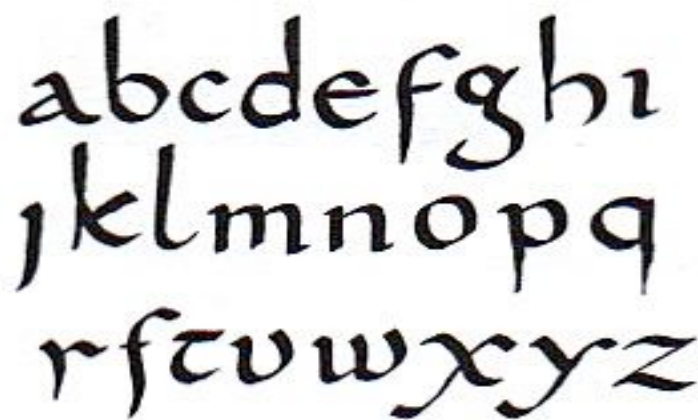 abcdefghı
ȷklmnopq
rſtuwxyz